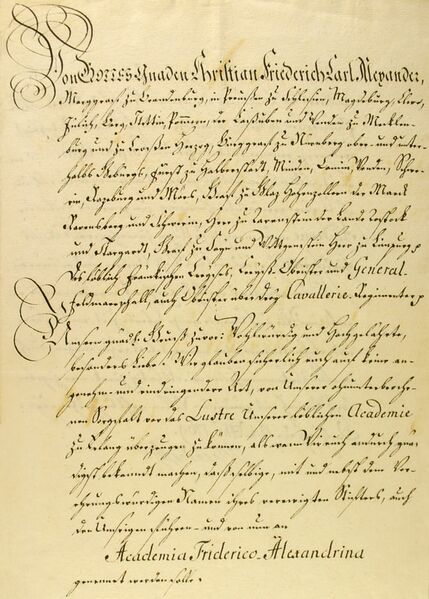 Von Gottes Gnaden Christian Friederich Carl Alexander,
Marggraf zu Brandenburg, in Preußen, zu Schlesien, Magdeburg, Cleve,
Jülich, Berg, Stettin, Pommern, der Caßuben und Wenden, zu Mecklen-
burg und zu Croßen Herzog, Burggraf zu Nürnberg ober- und unter-
halb Gebürgs, Fürst zu Halberstadt, Minden, Camin, Wenden, Schwe-
rin, Razeburg und Mörs, Graf zu Glaz, Hohenzollern, der Marck
Ravensberg und Schwerin, Herr zu Ravenstein, der Lande Rostock
und Stargardt, Graf zu Sayn und Wittgenstein, Herr zu Limpurg p
Des löblich Fränkischen Creyses, Creyß-Obrister und General-
Feldmarschall, auch Obrister über drey Cavallerie-Regimenter p
Unsern gnädl. Gruß zuvor; Wohlwürdig und Hochgelährte,
besonders Liebe! Wir glauben sicherlich euch auf keine an-
genehm- und eindringendere Art, von Unserer ohnunterbroche-
nen Sorgfalt vor das Lustre Unserer löblichen Academie
zu Erlang überzeugen zu können, als wann Wir euch andurch gnä-
digst bekannt machen, daß selbige, mit und nebst dem Ver-
ehrungswürdigen Namen ihres verewigten Stifters, auch
den Unsrigen führen- und von nun an
Academia Friderico-Alexandrina
genennet werden solle.